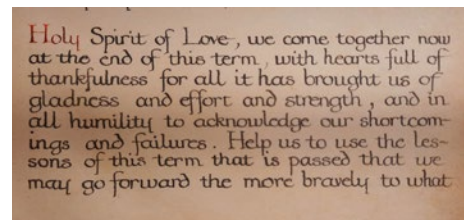 Holy Spirit of Love, we come together now
at the end of this term, with hearts full of
thankfulness for all it has brought us of
gladness and effort and strength, and in
all humility to acknowledge our shortcom-
ings and failures. Help us to use the les-
sons of this term that is passed that we
may go forward the more bravely to what